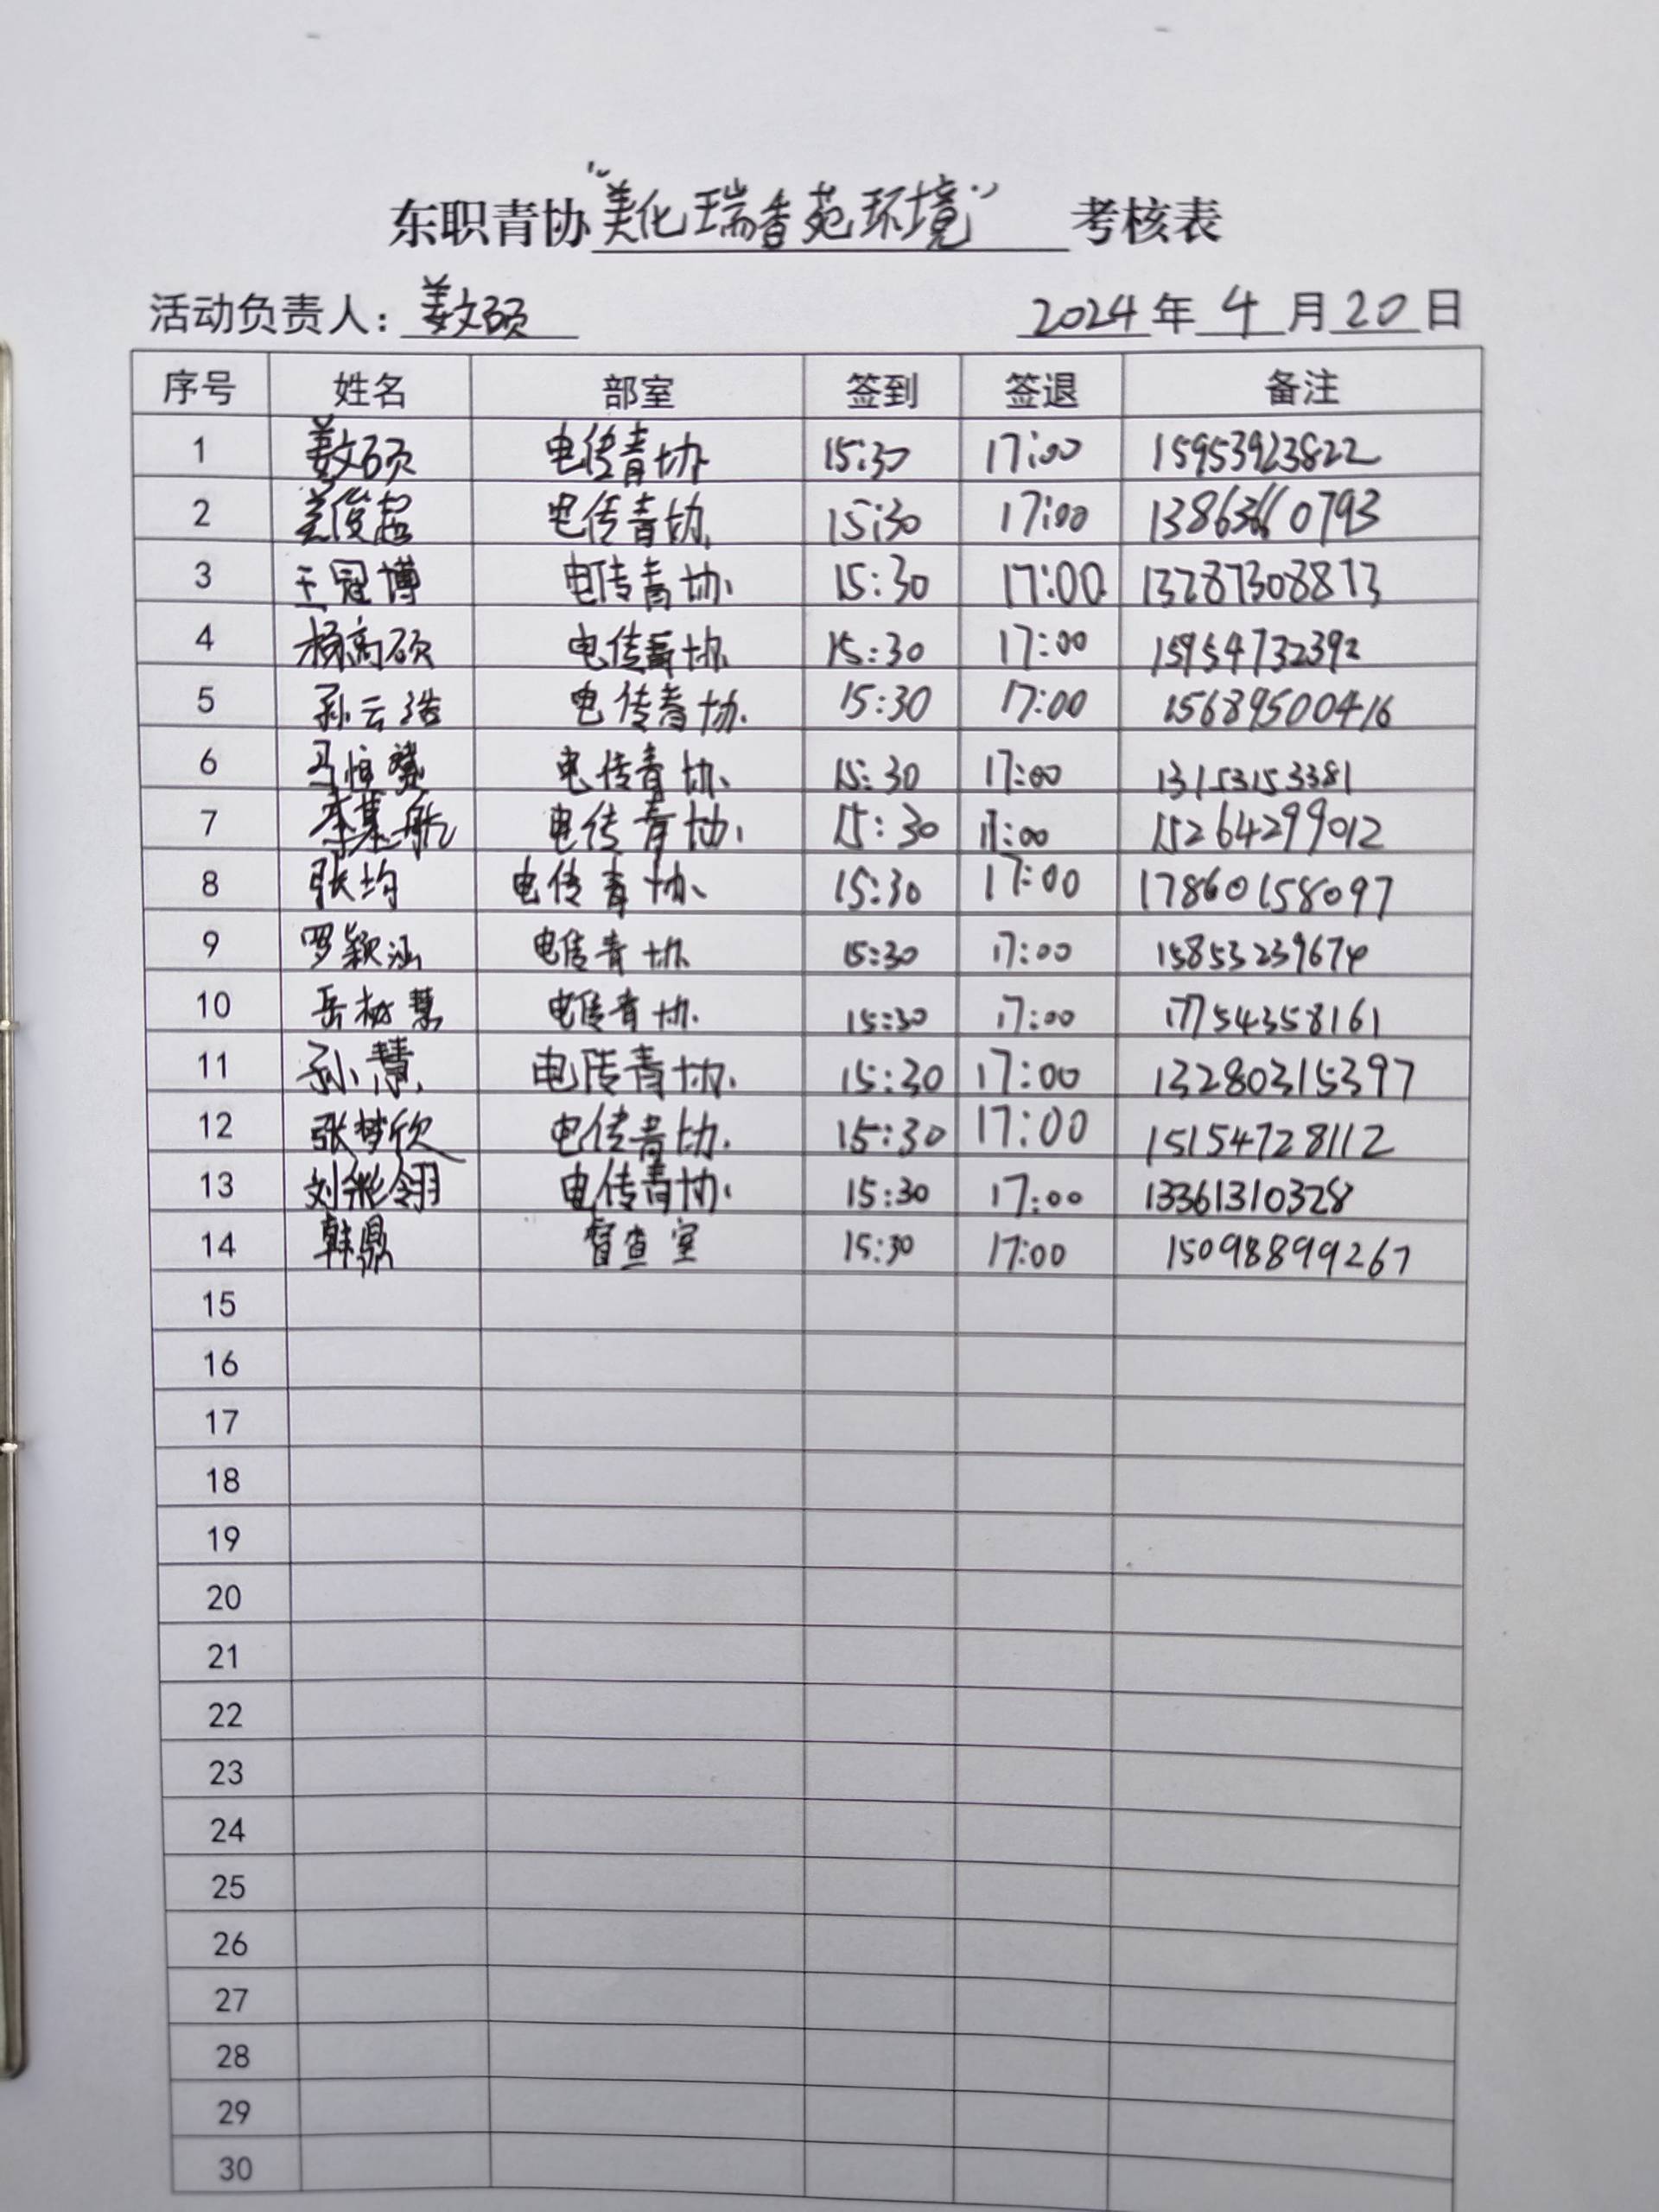 东职青协“美化瑞香苑环境”考核表
活动负责人：姜文硕 2024年4月20日
序号 姓名 部室 签到 签退 备注
1 姜文硕 电传青协 15:30 17:00 15953923822
2 姜俊超 电传青协 15:30 17:00 13863660793
3 王冠博 电传青协 15:30 17:00 13287308873
4 杨高硕 电传青协 15:30 17:00 15954732392
5 孙云浩 电传青协 15:30 17:00 15689500416
6 马恒 电传青协 15:30 17:00 13153153381
7 李基航 电传青协 15:30 17:00 15264299012
8 张均 电传青协 15:30 17:00 17860158097
9 罗颖汕 电传青协 15:30 17:00 15853239674
10 岳 慧 电传青协 15:30 17:00 17754358161
11 孙慧 电传青协 15:30 17:00 13280315397
12 张梦欣 电传青协 15:30 17:00 15154728112
13 刘彤翎 电传青协 15:30 17:00 13361310328
14 韩鼎 督查室 15:30 17:00 15098899267
15
16
17
18
19
20
21
22
23
24
25
26
27
28
29
30